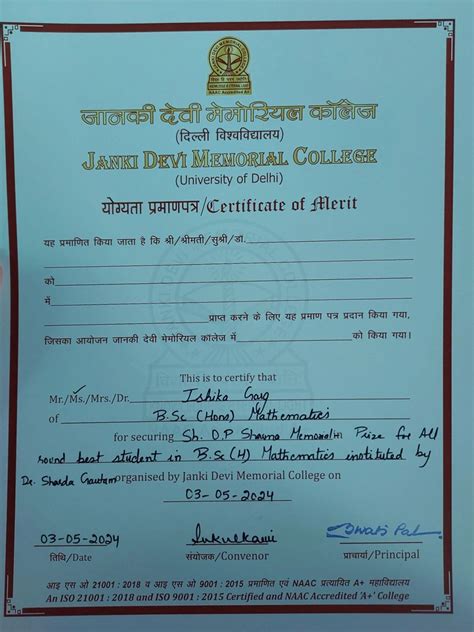 JANKI DEVI MEMORIAL COLLEGE
NAAC Accredited A+
जानकी देवी मेमोरियल कॉलेज
(दिल्ली विश्वविद्यालय)
JANKI DEVI MEMORIAL COLLEGE
(University of Delhi)
योग्यता प्रमाणपत्र/Certificate of Merit
यह प्रमाणित किया जाता है कि श्री/श्रीमती/सुश्री/डॉ.
को
में
प्राप्त करने के लिए यह प्रमाण पत्र प्रदान किया गया,
जिसका आयोजन जानकी देवी मेमोरियल कॉलेज में को किया गया।
This is to certify that
Mr./Ms./Mrs./Dr. Ishika Garg
of B.Sc (Hons) Mathematics
for securing Sh. O.P Sharma Memorial Prize for All
round best student in B.Sc(H) Mathematics instituted by
Dr. Sharda Gautam organised by Janki Devi Memorial College on
03-05-2024
03-05-2024
Swati Pal
तिथि/Date संयोजक/Convenor प्राचार्या/Principal
आइ एस ओ 21001 : 2018 व आइ एस ओ 9001 : 2015 प्रमाणित एवं NAAC प्रत्यायित A+ महाविद्यालय
An ISO 21001 : 2018 and ISO 9001 : 2015 Certified and NAAC Accredited 'A+' College